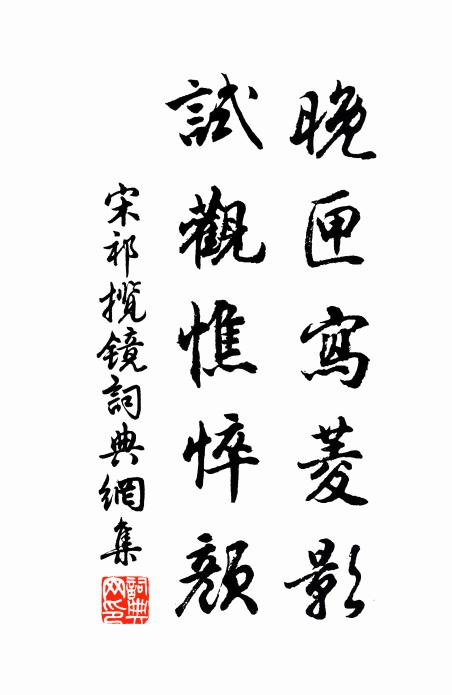 晚匣寫菱影
試觀憔悴顏
宋祁攬鏡詞典網集
詞典網印